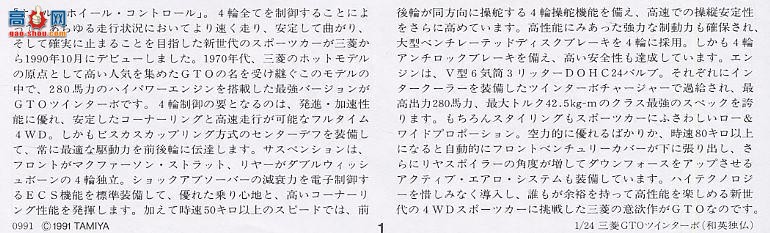 ール・ホイール・コントロール」。4輪全てを制御することによ
ゆる走行状況においてより速く走り、安定して曲がり、
そして確実に止まることを目指した新世代のスポーツカーが三菱か
ら1990年10月にデビューしました。1970年代、三菱のホットモデル
の原点として高い人気を集めたGTOの名を受け継ぐこのモデルの
中で、280馬力のハイパワーエンジンを搭載した最強バージョンが
GTOツインターボです。4輪制御の要となるのは、発進・加速性
能に優れ、安定したコーナーリングと高速走行が可能なフルタイム
4WD。しかもビスカスカップリング方式のセンターデフを装備し
て、常に最適な駆動力を前後輪に伝達します。サスペンションは、
フロントがマクファーソン・ストラット、リヤーがダブルウィッシ
ュボーンの4輪独立。ショックアブソーバーの減衰力を電子制御す
るECS機能を標準装備して、優れた乗り心地と、高いコーナーリ
ング性能を発揮します。加えて時速50キロ以上のスピードでは、前
0991 ©1991 TAMIYA
後輪が同方向に操舵する4輪操舵機能を備え、高速での操縦安定性
をさらに高めています。高性能にみあった強力な制動力も確保され、
大型ベンチレーテッドディスクブレーキを4輪に採用。しかも4輪
アンチロックブレーキを備え、高い安全性も達成しています。エン
ジンは、V型6気筒3リッターDOHC24バルブ。それぞれにイン
タークーラーを装備したツインターボチャージャーで過給され、最
高出力280馬力、最大トルク42.5kg-mのクラス最強のスペックを誇
ります。もちろんスタイリングもスポーツカーにふさわしいロー&
ワイドプロポーション。空力的に優れるばかりか、時速80キロ以上
になると自動的にフロントベンチュリーカバーが下に張り出し、さ
らにリヤスポイラーの角度が増してダウンフォースをアップさせる
アクティブ・エアロ・システムも装備しています。ハイテクノロジ
ーを惜しみなく導入し、誰もが余裕を持って高性能を楽しめる新世
代の4WDスポーツカーに挑戦した三菱の意欲作がGTOなのです。
1
1/24 三菱GTOツインターボ(和英独仏)
gao-shou.com